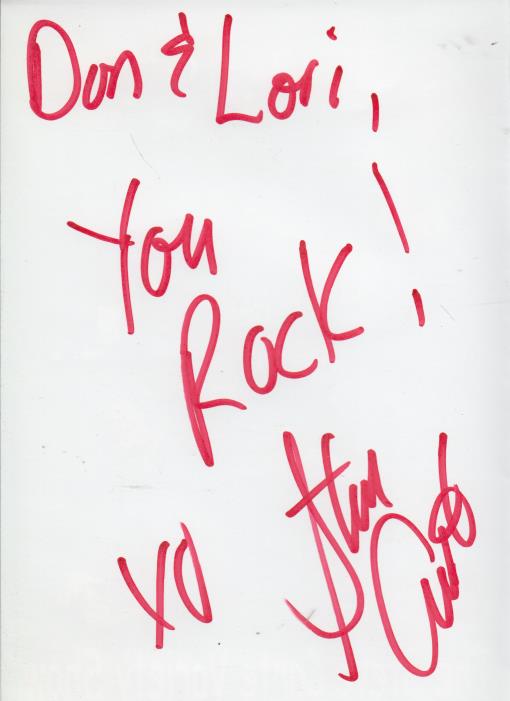 Don & Lori,
You
Rock!
XO